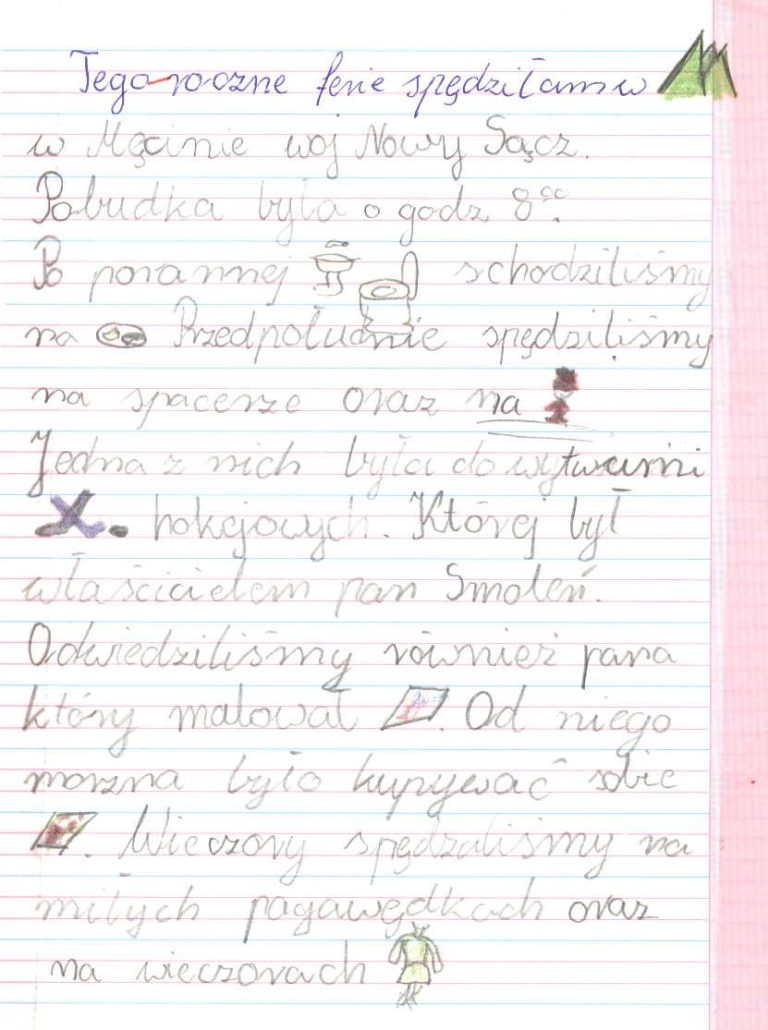 Tegoroczne ferie spędziłam w
w Męcinie woj Nowy Sącz.
Pobudka była o godz 8⁰⁰.
Po porannej schodziliśmy
na Przedpołudnie spędziliśmy
na spacerze oraz na
Jedna z nich była do wytwurni
hokejowych. Której był
właścicielem pan Smoleń.
Odwiedziliśmy również pana
który malował . Od niego
morzna było kupywać sobie
. Wieczory spędzaliśmy na
miłych pagawędkach oraz
na wieczorach